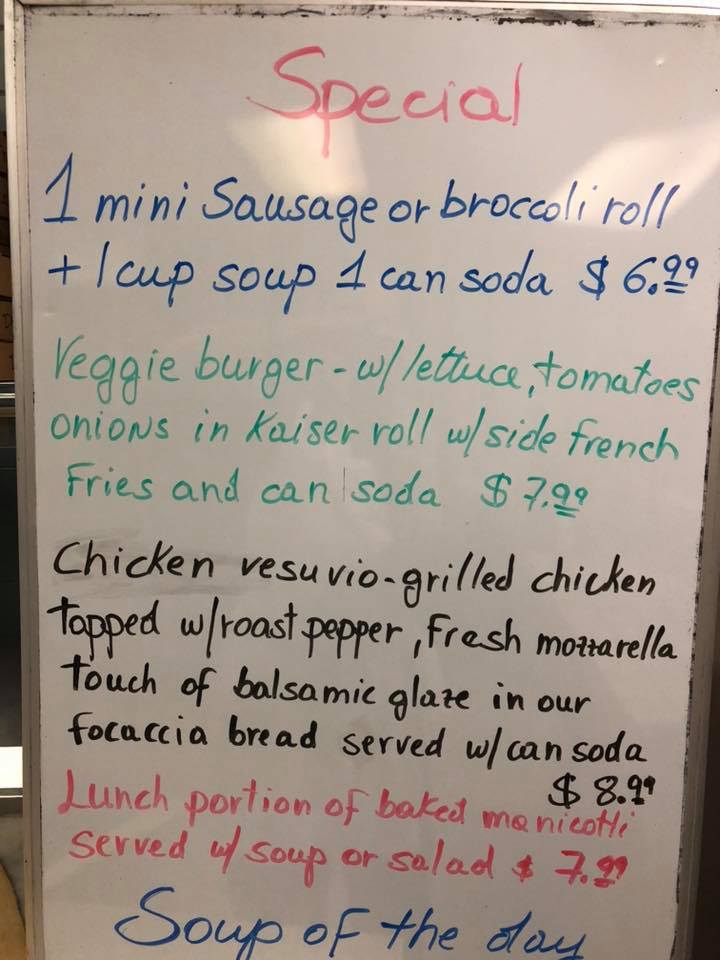 Special
1 mini Sausage or broccoli roll
+ 1 cup soup 1 can soda $ 6.99
Veggie burger - w/ lettuce, tomatoes
onions in Kaiser roll w/ side french
Fries and can soda $ 7.99
Chicken vesuvio - grilled chicken
topped w/ roast pepper, fresh mozzarella
touch of balsamic glaze in our
focaccia bread served w/ can soda
$ 8.99
Lunch portion of baked manicotti
served w/ soup or salad $ 7.99
Soup of the day